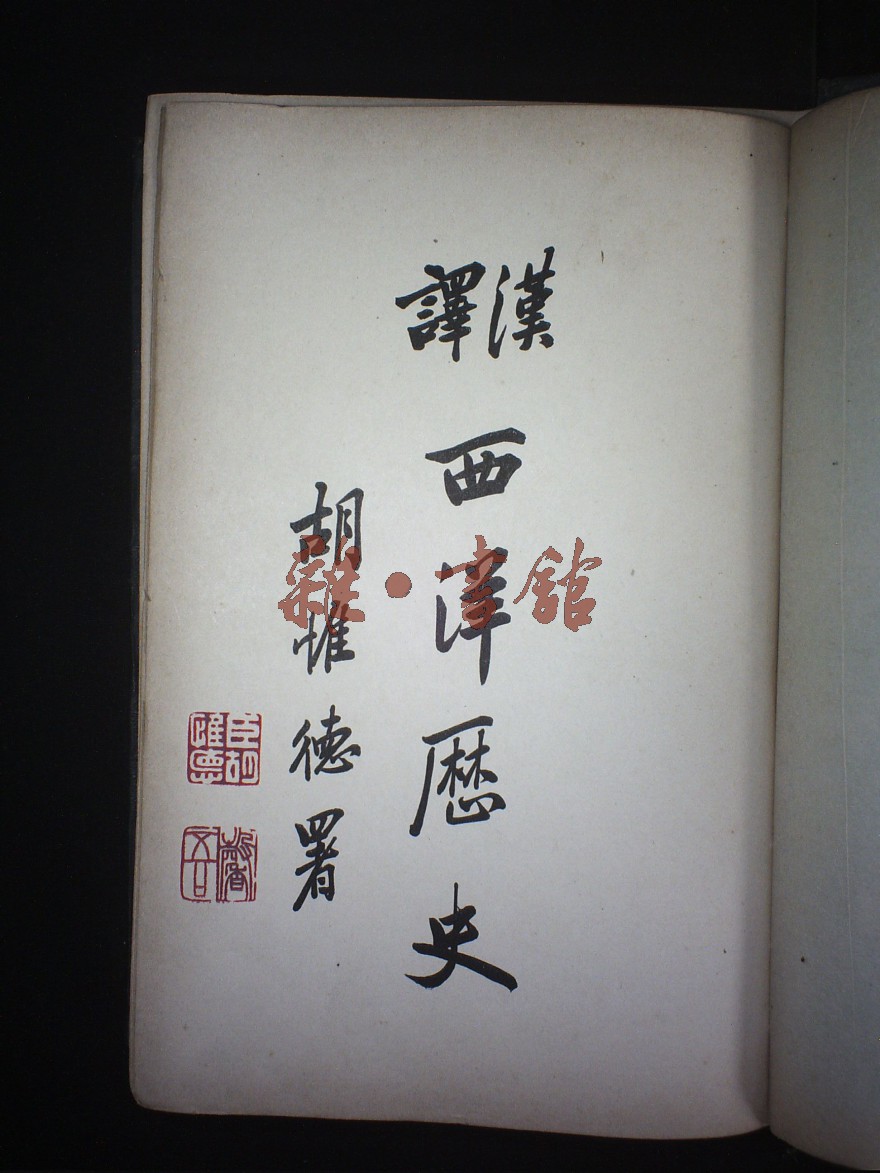 漢譯
西洋歷史
胡惟德署
臣胡惟德
雜·書館